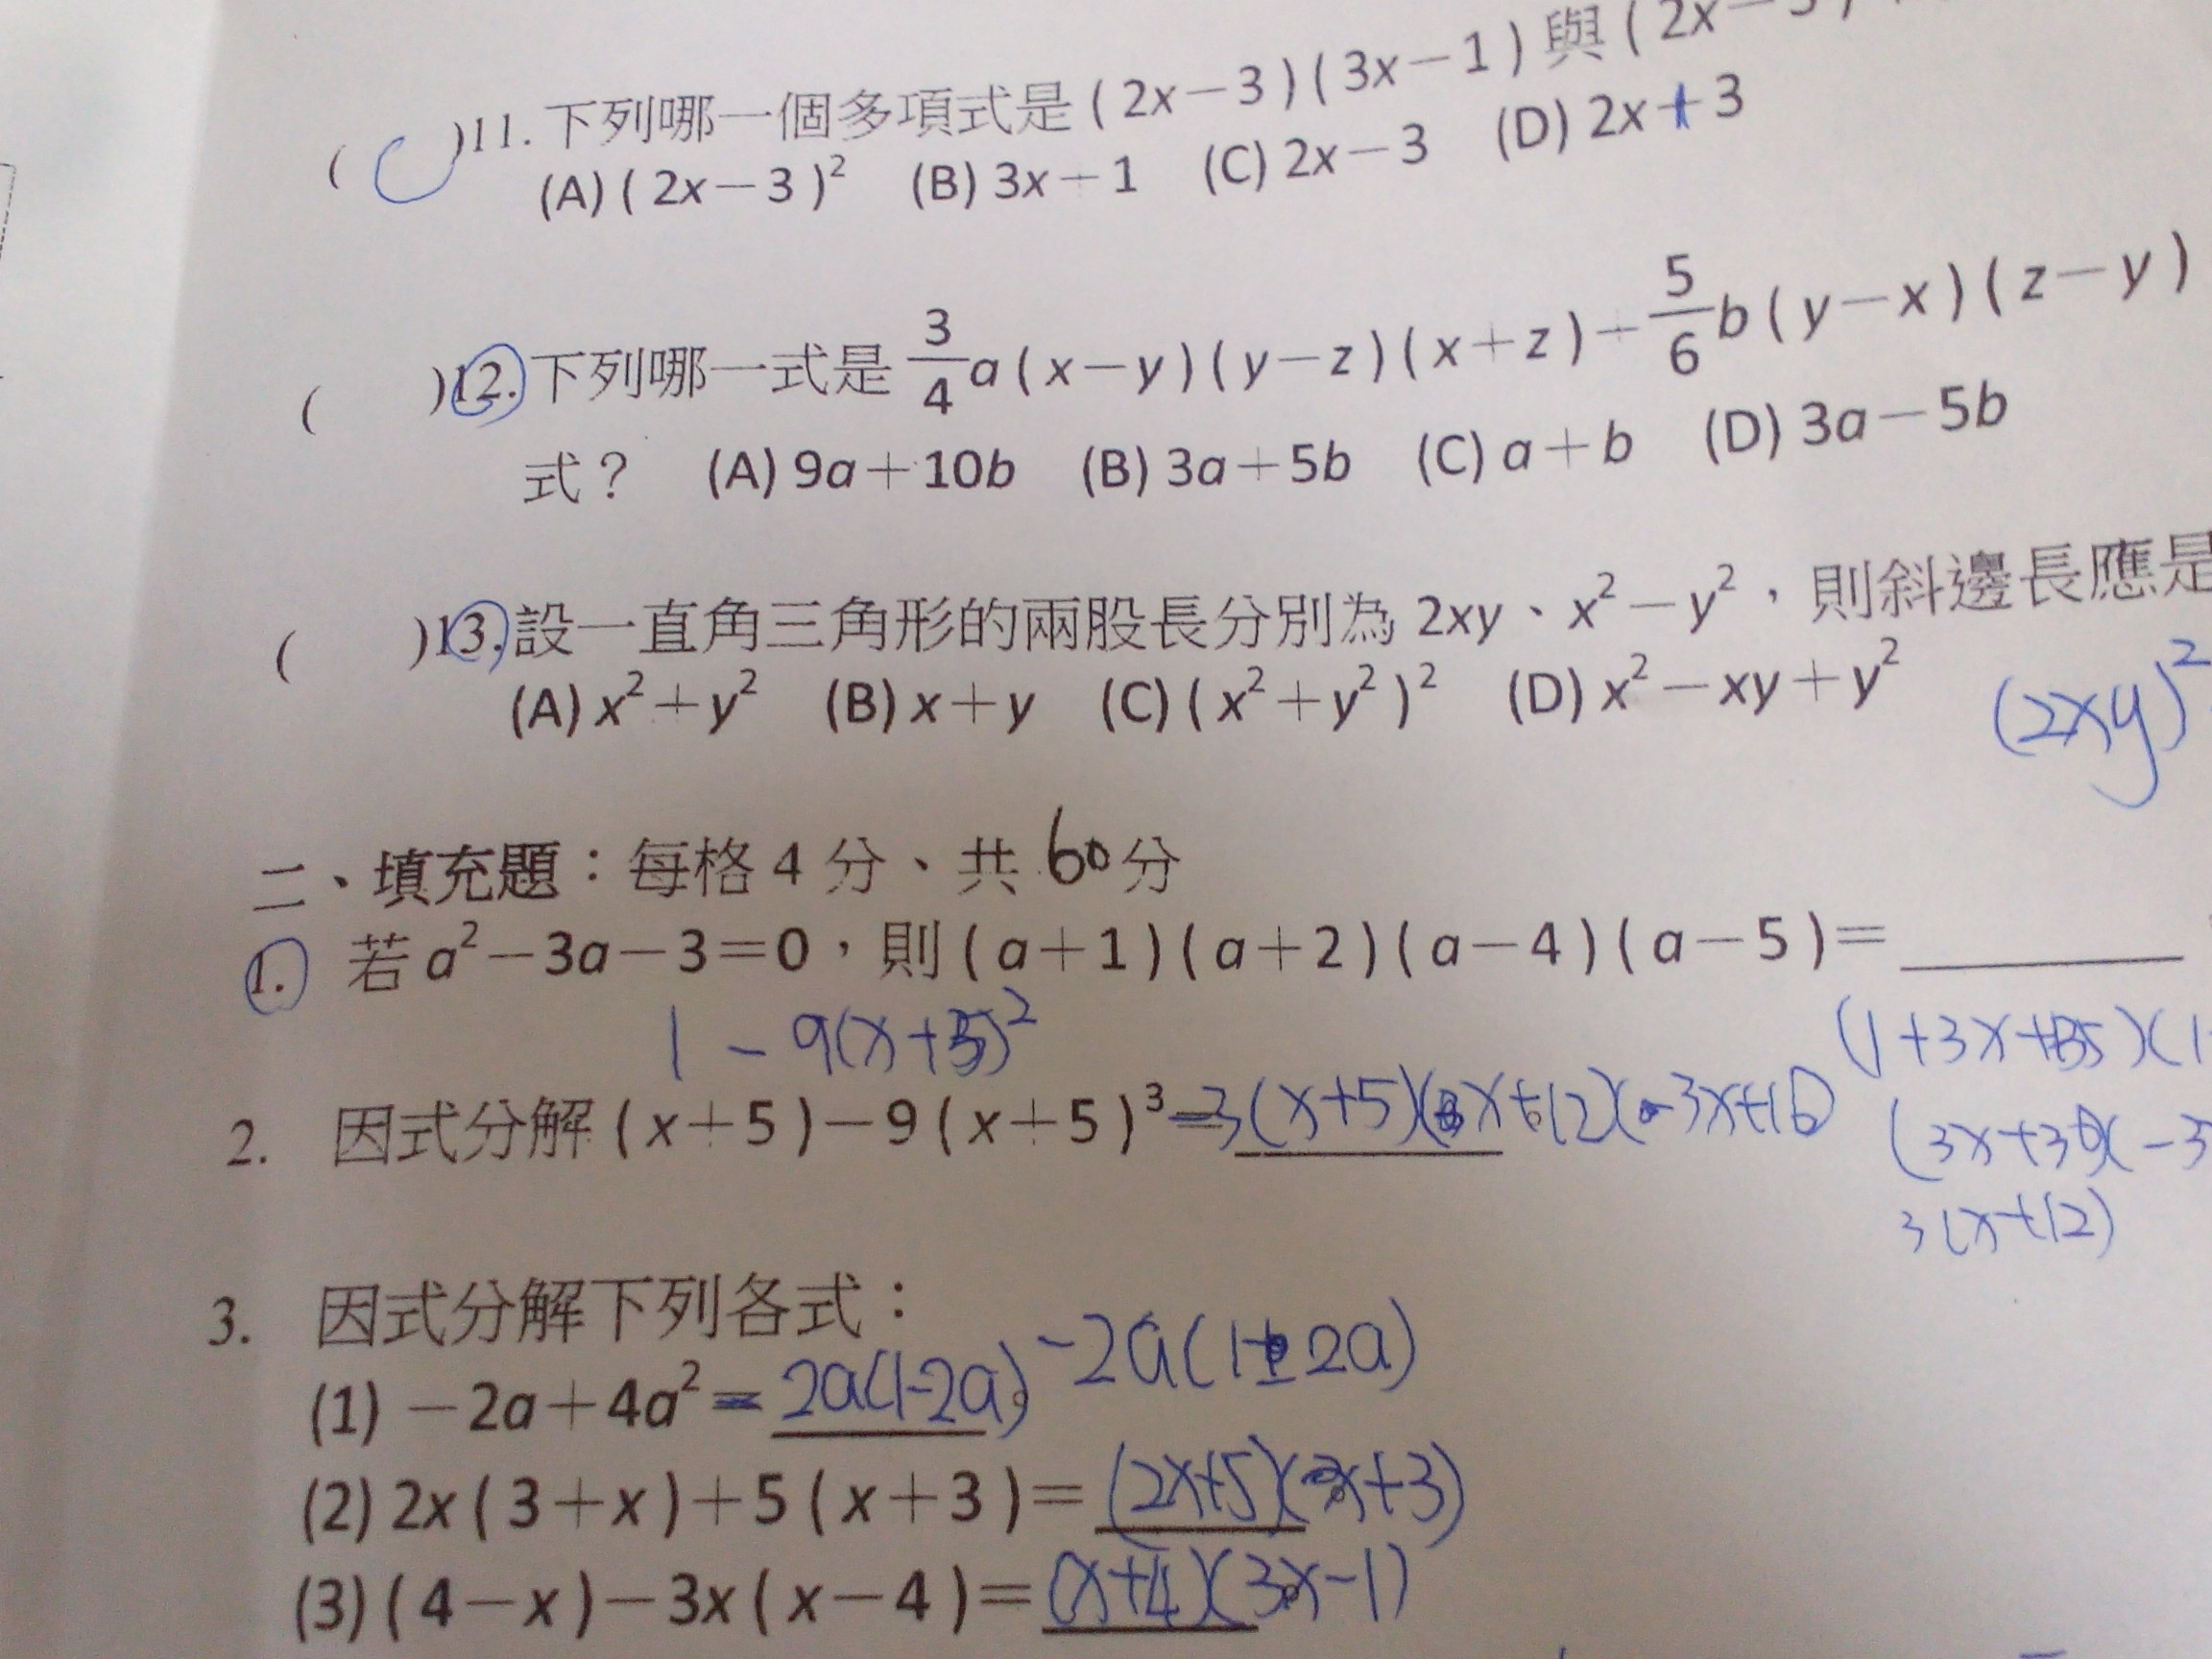 ( C )11. 下列哪一個多項式是 ( 2x－3 ) ( 3x－1 ) 與 ( 2x－3 )
(A) ( 2x－3 )² (B) 3x－1 (C) 2x－3 (D) 2x＋3
( )12. 下列哪一式是 3/4 a ( x－y ) ( y－z ) ( x＋z )－5/6 b ( y－x ) ( z－y )
式？ (A) 9a＋10b (B) 3a＋5b (C) a＋b (D) 3a－5b
( )13. 設一直角三角形的兩股長分別為 2xy、x²－y²，則斜邊長應是
(A) x²＋y² (B) x＋y (C) ( x²＋y² )² (D) x²－xy＋y²
(2xy)²
二、填充題：每格 4 分、共 60 分
1. 若 a²－3a－3＝0，則 ( a＋1 ) ( a＋2 ) ( a－4 ) ( a－5 )＝
1 － 9(x+5)²
(1+3x+35)(1
2. 因式分解 ( x＋5 )－9 ( x＋5 )³＝3(x+5)(x+12)(-3x+16)
(3x+36)(-3
3(x+12)
3. 因式分解下列各式：
(1) －2a＋4a²＝2a(1-2a) -2a(1-2a)
(2) 2x ( 3＋x )＋5 ( x＋3 )＝(2x+5)(x+3)
(3) ( 4－x )－3x ( x－4 )＝(x+4)(3x-1)